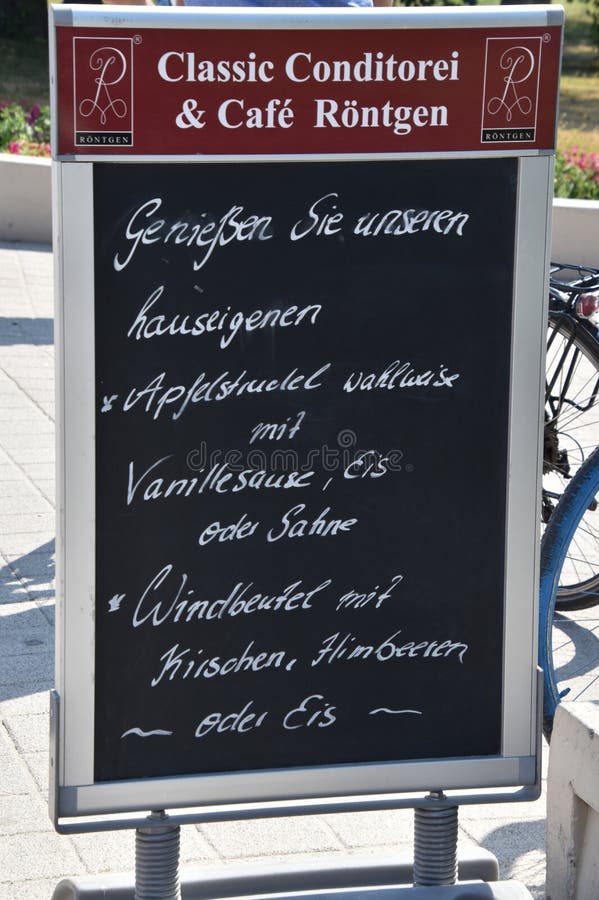 Classic Conditorei
& Café Röntgen
RÖNTGEN
RÖNTGEN
Genießen Sie unseren
hauseigenen
* Apfelstrudel wahlweise
mit
Vanillesause, Eis
oder Sahne
* Windbeutel mit
Kirschen, Himbeeren
~ oder Eis ~
dreamstime